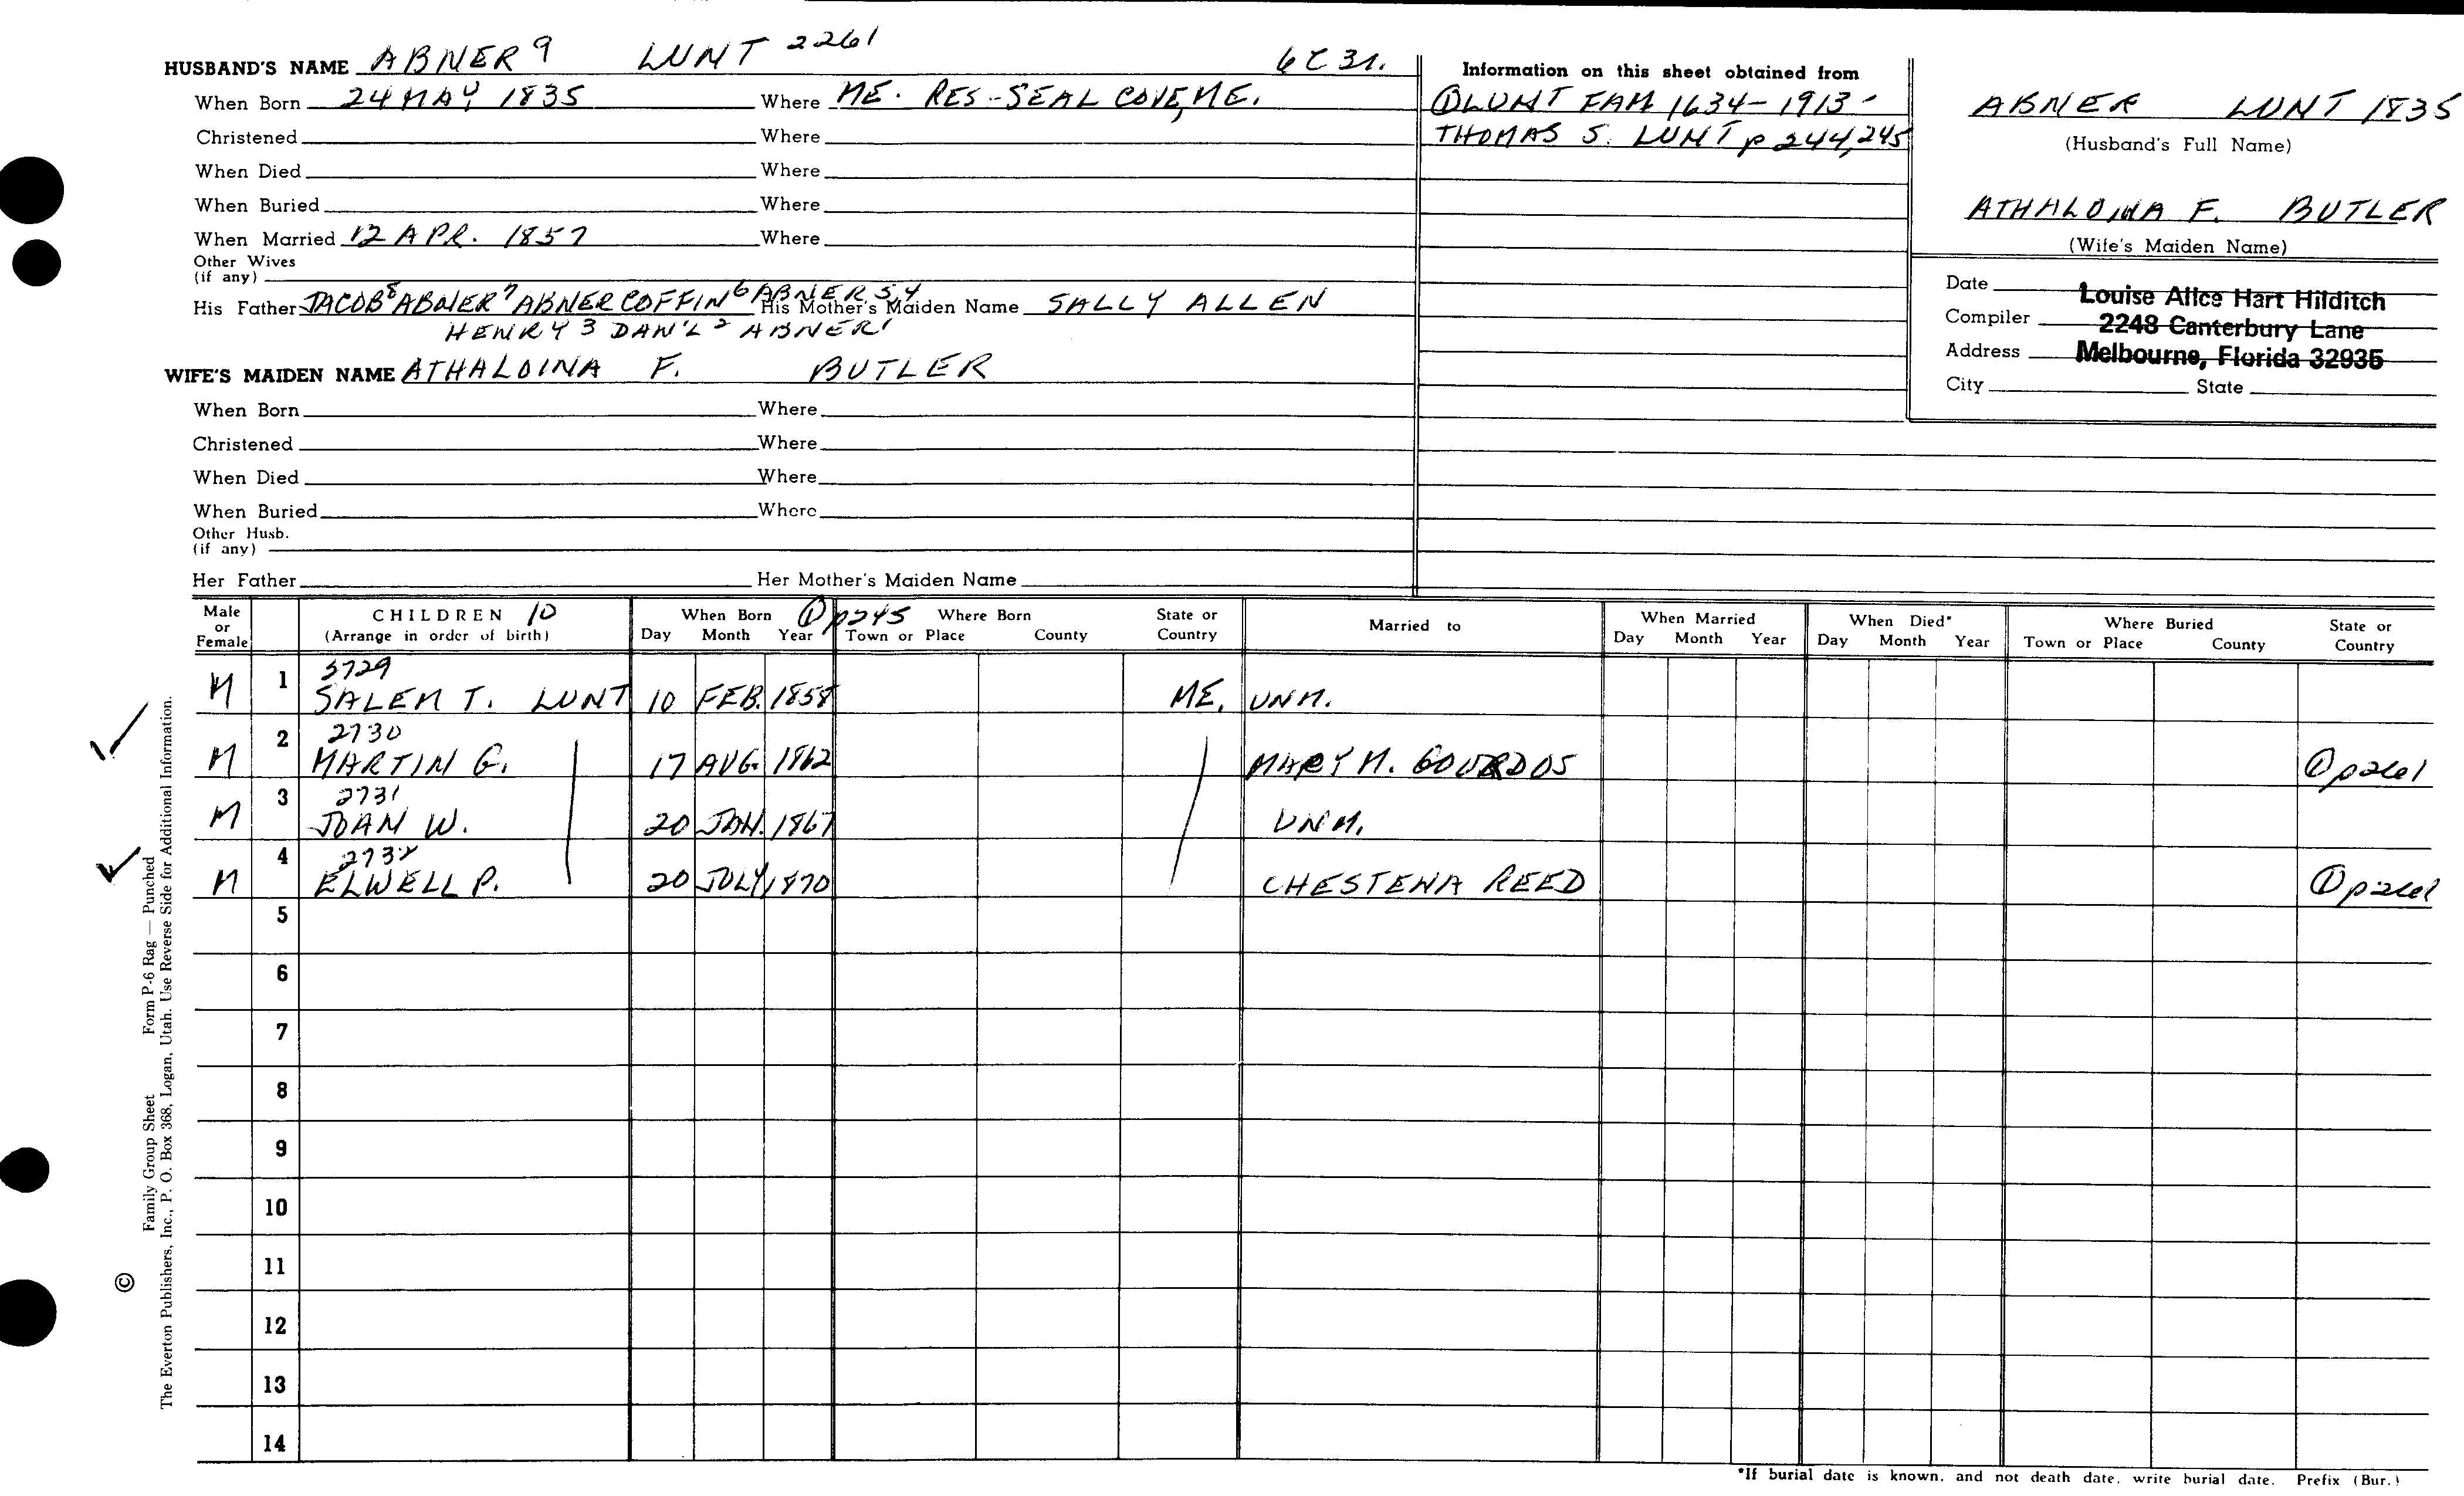 HUSBAND'S NAME ABNER 9 LUNT 2261 6C31.
When Born 24 MAY 1835 Where ME. RES.-SEAL COVE, ME.
Christened Where
When Died Where
When Buried Where
When Married 12 APR. 1857 Where
Other Wives
(if any)
His Father JACOB 8 ABNER 7 ABNER COFFIN 6 ABNER 5,4 His Mother's Maiden Name SALLY ALLEN
HENRY 3 DAN'L 2 ABNER 1
WIFE'S MAIDEN NAME ATHALOINA F. BUTLER
When Born Where
Christened Where
When Died Where
When Buried Where
Other Husb.
(if any)
Her Father Her Mother's Maiden Name
Information on this sheet obtained from
① LUNT FAM 1634-1913 -
THOMAS S. LUNT p 244, 245
ABNER LUNT 1835
(Husband's Full Name)
ATHALOINA F. BUTLER
(Wife's Maiden Name)
Date
Compiler
Address
City State
Louise Alice Hart Hilditch
2248 Canterbury Lane
Melbourne, Florida 32935
Male or Female
CHILDREN 10
(Arrange in order of birth)
When Born ① p245
Day Month Year
Where Born
Town or Place County
State or Country
Married to
When Married
Day Month Year
When Died*
Day Month Year
Where Buried
Town or Place County
State or Country
2729
M 1 SALEM T. LUNT 10 FEB. 1858 ME. UNM.
2730
M 2 MARTIN G. 17 AUG. 1862 MARY M. ① p261
2731
M 3 JOAN W. 20 JAN. 1867 UNM.
2732
M 4 ELWELL P. 20 JULY 1870 CHESTENA REED ① p261
5
6
7
8
9
10
11
12
13
14
*If burial date is known, and not death date, write burial date. Prefix (Bur.)
© Family Group Sheet Form P-6 Rag — Punched
The Everton Publishers, Inc., P. O. Box 368, Logan, Utah. Use Reverse Side for Additional Information.